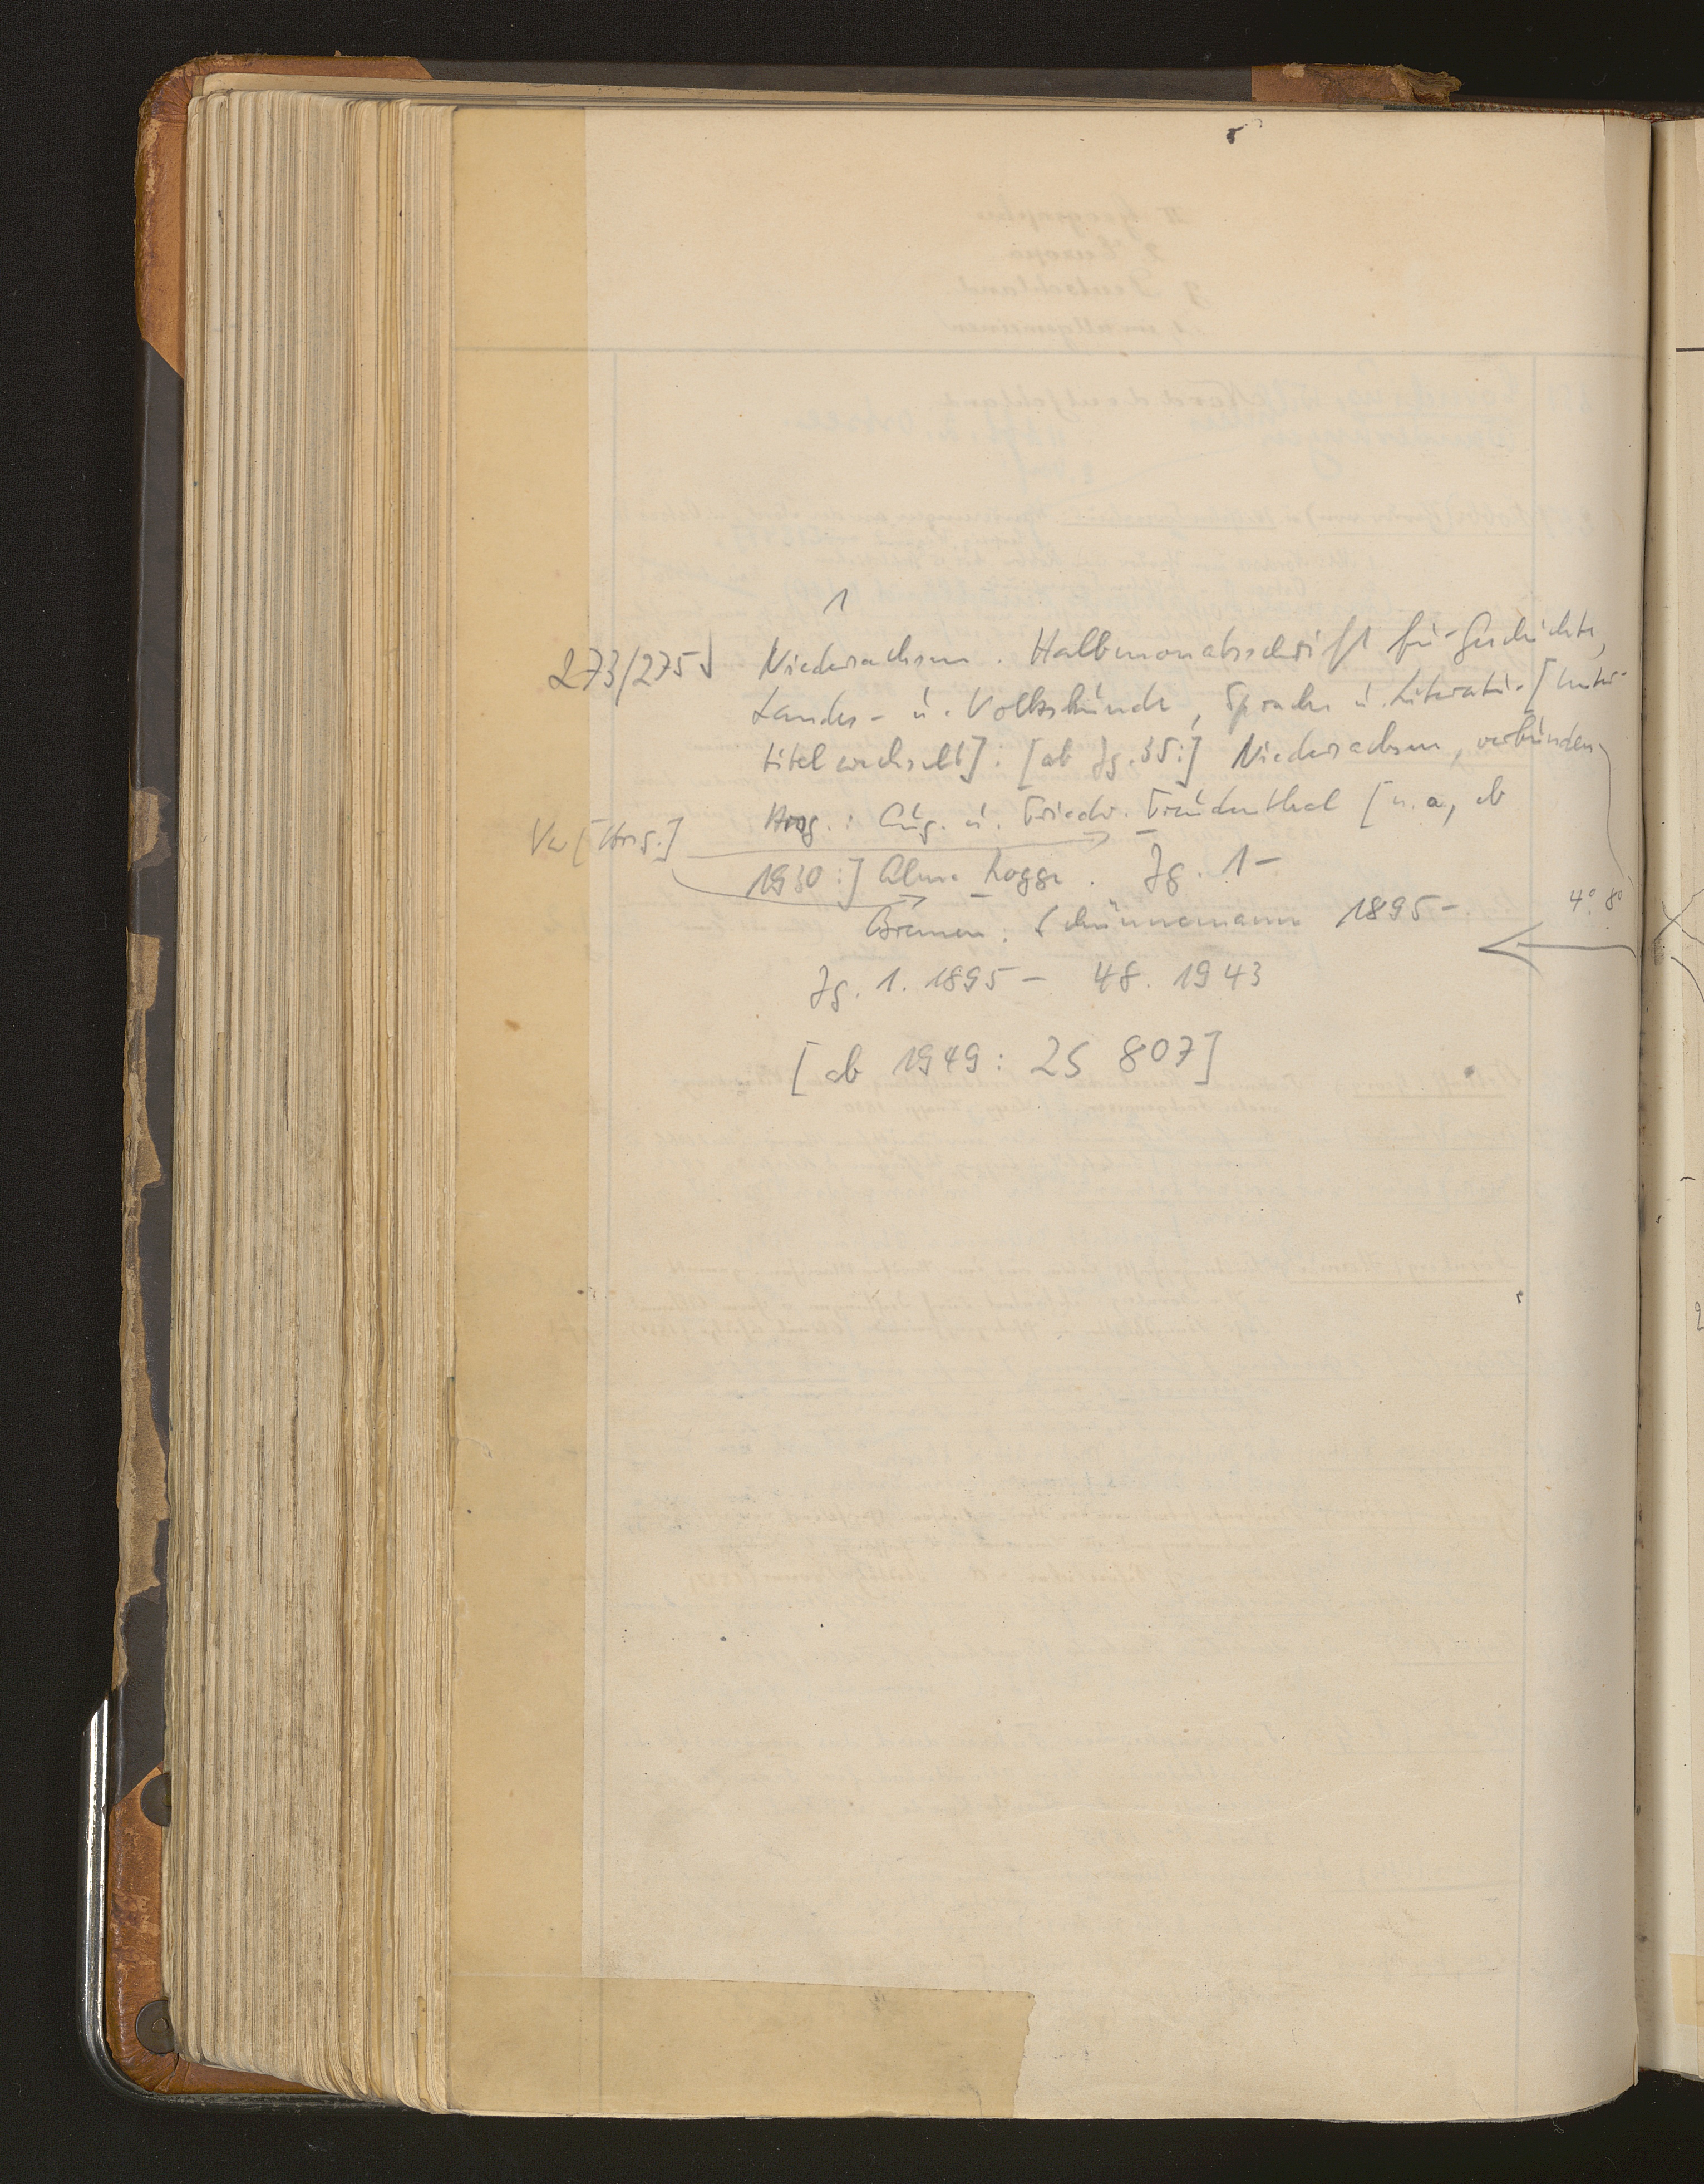 1
273/275 Niedersachsen. Halbmonatsschrift für Geschichte,
Landes- u. Volkskunde, Sprache u. Literatur [Unter-
titel wechselt]: [ab Jg. 35:] Niedersachsen, verbunden
Hrsg.: Aug. u. Friedr. Freudenthal [u. a., ab
Vw [Hrsg.]
1930:] Alma Rogge. Jg. 1-
Bremen: Schünnemann 1895-
4° 8°
Jg. 1. 1895 - 48. 1943
[ab 1949: ZS 807]